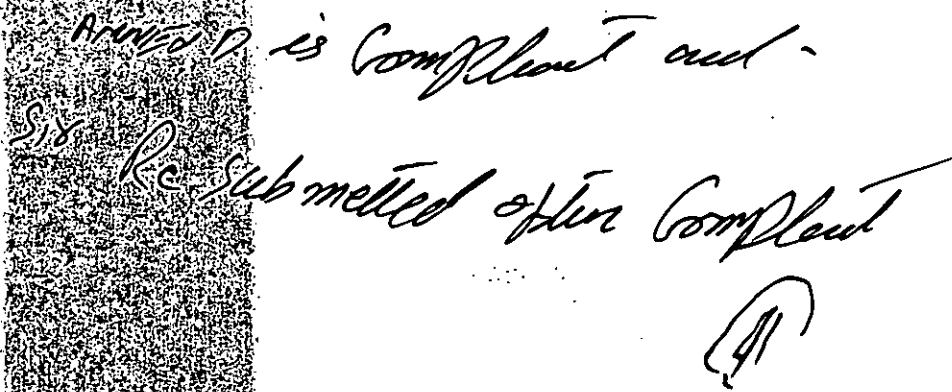 is Complaint and -
Six Re submitted after Complaint